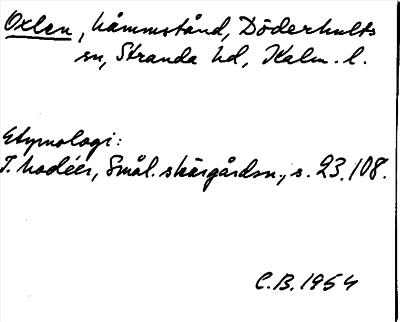 Oxlen, håmmstånd, Döderhults
sn, Stranda hd, Kalm. l.
Etymologi:
T. Modéer, Smål. skärgårdsn., s. 23. 108.
C.B. 1954